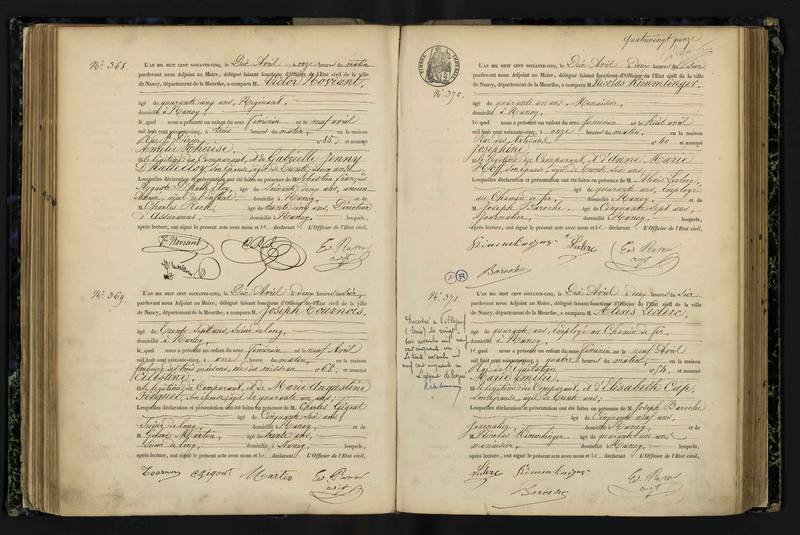 N° 368.
L'AN MIL HUIT CENT SOIXANTE-CINQ, le Dix Avril onze heures du matin
pardevant nous Adjoint au Maire, délégué faisant fonctions d'Officier de l'Etat civil de la ville
de Nancy, département de la Meurthe, a comparu M. Victor Noviant,
âgé de quarante cinq ans, Régisseur,
domicilié à Nancy,
lequel nous a présenté un enfant du sexe féminin né le neuf avril
mil huit cent soixante-cinq, à trois heures du matin, en la maison
Rue St Dizier n° 85, et nommé
Amélie Thérèse,
fille légitime du Comparant, et de Gabrielle Jenny
son épouse, âgée de trente deux ans.
Lesquelles déclaration et présentation ont été faites en présence de M. Sébastien François
Auguste âgé de soixante deux ans, ancien
domicilié à Nancy, et de
M. Charles âgé de trente cinq ans, Directeur
d'Assurances, domicilié à Nancy, lesquels,
après lecture, ont signé le présent acte avec nous et le déclarant. L'Officier de l'Etat civil,
V. Noviant
N° 369.
L'AN MIL HUIT CENT SOIXANTE-CINQ, le Dix Avril deux heures du soir,
pardevant nous Adjoint au Maire, délégué faisant fonctions d'Officier de l'Etat civil de la ville
de Nancy, département de la Meurthe, a comparu M. Joseph Tournois,
âgé de trente sept ans, scieur de long,
domicilié à Nancy,
lequel nous a présenté un enfant du sexe féminin né le neuf Avril
mil huit cent soixante-cinq, à une heure du matin, en la maison
faubourg des trois maisons, rue du ruisseau n° 62, et nommé
Célestine,
fille légitime du Comparant, et de Marie Augustine
son épouse, âgée de quarante un ans.
Lesquelles déclaration et présentation ont été faites en présence de M. Charles Gigout
âgé de cinquante six ans,
Scieur de long, domicilié à Nancy et de
M. Gidéon Martin, âgé de trente ans,
Scieur de long, domicilié à Nancy, lesquels,
après lecture, ont signé le présent acte avec nous et le déclarant. L'Officier de l'Etat civil,
Tournois Gigout Martin
quatrevingt quinze
N° 370.
L'AN MIL HUIT CENT SOIXANTE-CINQ, le Dix Avril deux heures du soir
pardevant nous Adjoint au Maire, délégué faisant fonctions d'Officier de l'Etat civil de la ville
de Nancy, département de la Meurthe, a comparu M. Nicolas Kimmlinger,
âgé de quarante un ans, Menuisier,
domicilié à Nancy,
lequel nous a présenté un enfant du sexe féminin né le huit avril
mil huit cent soixante-cinq, à onze heures du matin, en la maison
Rue des Artisans n° 40 et nommé
Joséphine,
fille légitime du Comparant, et d'Anne Marie
Hoff, son épouse, âgée de trente six ans.
Lesquelles déclaration et présentation ont été faites en présence de M. Alexis Leclerc,
âgé de quarante ans, Employé
au Chemin de fer, domicilié à Nancy et de
M. Joseph Baroche âgé de Cinquante sept ans,
Journalier, domicilié à Nancy, lesquels,
après lecture, ont signé le présent acte avec nous et le déclarant. L'Officier de l'Etat civil,
Kimmlinger Leclerc
Baroche
R
N° 371.
L'AN MIL HUIT CENT SOIXANTE-CINQ, le Dix Avril deux heures du soir
pardevant nous Adjoint au Maire, délégué faisant fonctions d'Officier de l'Etat civil de la ville
de Nancy, département de la Meurthe, a comparu M. Alexis Leclerc,
âgé de quarante ans, Employé au Chemin de fer,
domicilié à Nancy,
lequel nous a présenté un enfant du sexe féminin né le neuf Avril
mil huit cent soixante-cinq, à quatre heures du matin, en la maison
Rue de l'Equitation n° 14, et nommé
Marie Emélie,
fille légitime du Comparant, et d'Elisabeth Cap,
son épouse, âgée de trente ans.
Lesquelles déclaration et présentation ont été faites en présence de M. Joseph Baroche
âgé de Cinquante sept ans,
Journalier, domicilié à Nancy, et de
M. Nicolas Kimmlinger âgé de quarante un ans,
menuisier, domicilié à Nancy, lesquels,
après lecture, ont signé le présent acte avec nous et le déclarant. L'Officier de l'Etat civil,
Leclerc Kimmlinger
Baroche